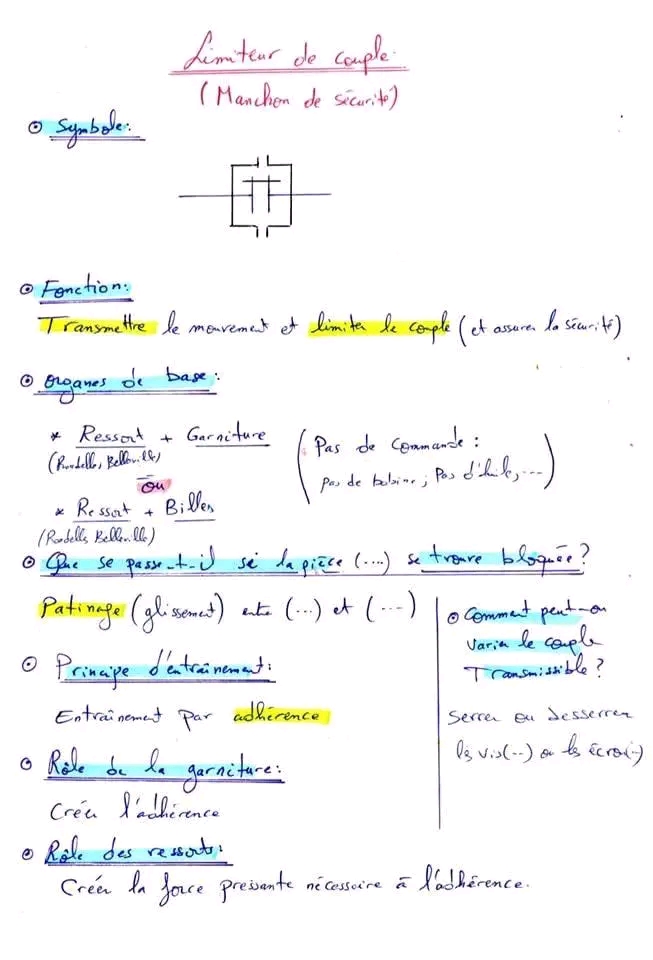 Limiteur de couple
(Manchon de sécurité)
Symbole:
Fonction:
Transmettre le mouvement et limiter le couple (et assurer la sécurité)
Organes de base:
* Ressort + Garniture
(Rondelles Belleville)
ou
* Ressort + Billes
(Rondelles Belleville)
(Pas de commande :
Pas de bobine ; Pas d'huile, ...)
Que se passe-t-il si la pièce (...) se trouve bloquée ?
Patinage (glissement) entre (...) et (...)
Principe d'entraînement:
Entraînement par adhérence
Rôle de la garniture:
Créer l'adhérence
Rôle des ressorts:
Créer la force pressante nécessaire à l'adhérence.
Comment peut-on
varier le couple
Transmissible ?
Serrer ou desserrer
les vis(..) ou les écrou(..)